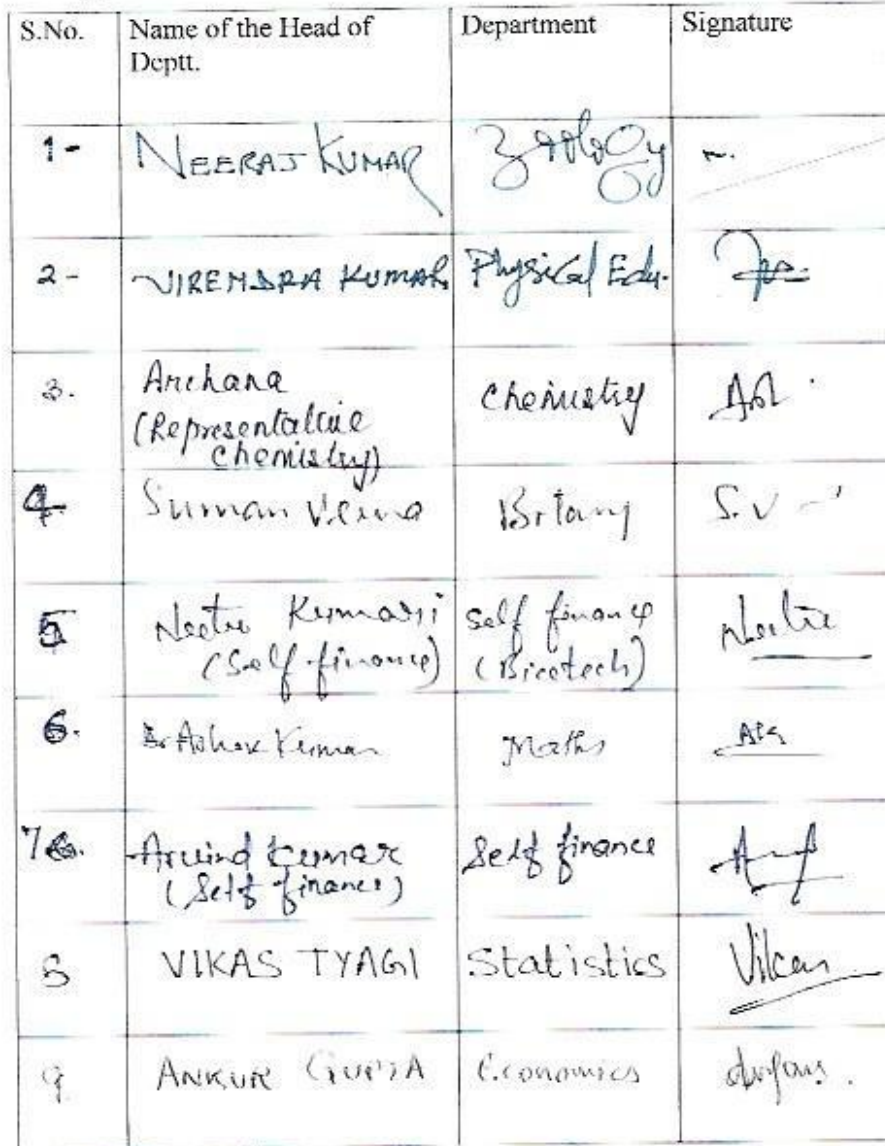 S.No. Name of the Head of Deptt. Department Signature
1- NEERAJ KUMAR Zoology N.
2- VIRENDRA KUMAR Physical Edu.
3. Archana (Representative Chemistry) Chemistry
4- Suman Verma Botany S.V
5 Neetu Kumari (Self finance) Self finance (Biotech) Neetu
6. Dr Ashok Kumar Maths AK
7. Arvind Kumar (Self finance) Self finance
8 VIKAS TYAGI Statistics Vikas
9. ANKUR GUPTA Economics